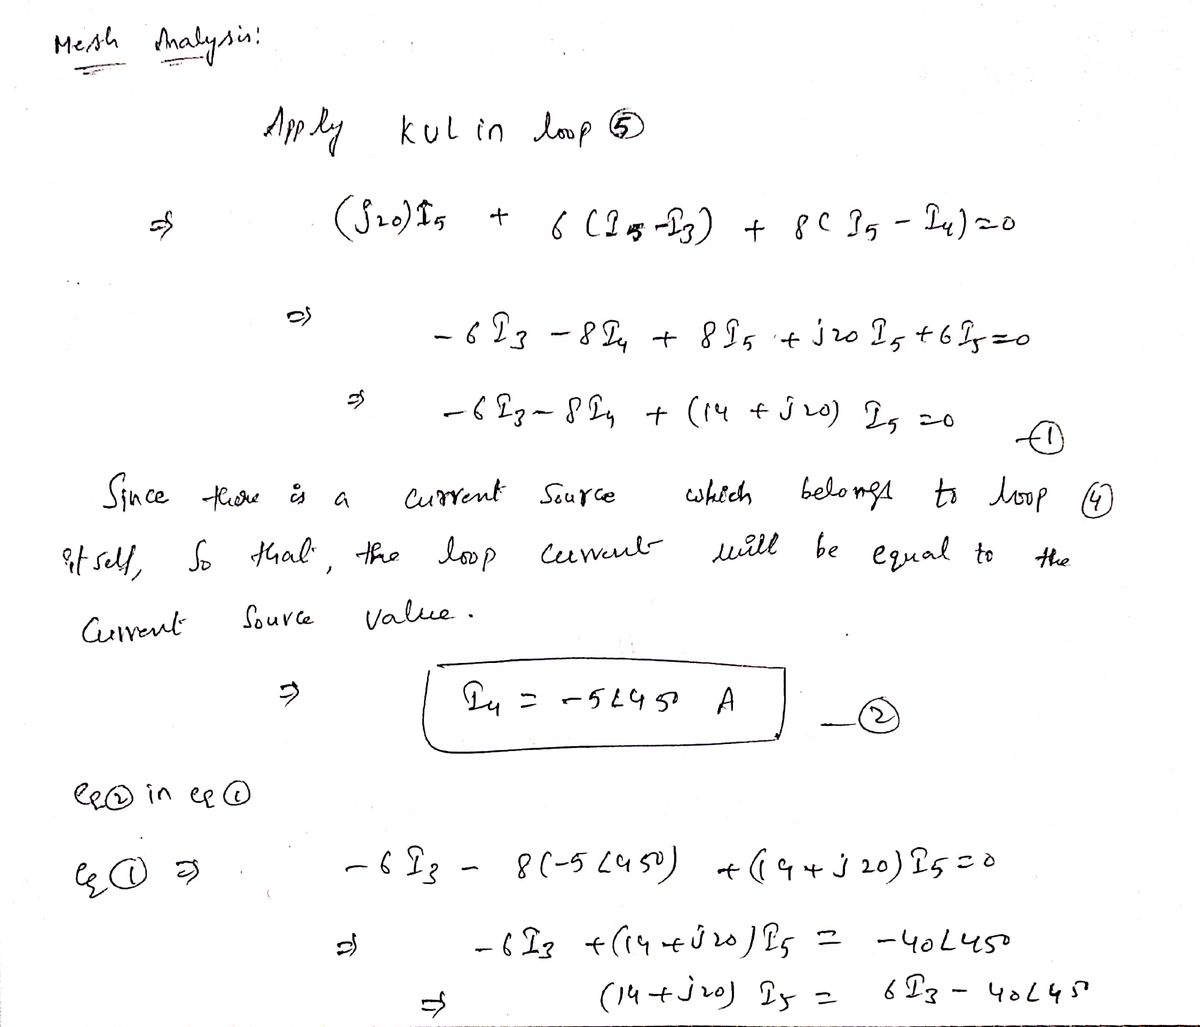 Mesh Analysis:
Apply KVL in loop ⑤
⇒ (j20)I₅ + 6(I₅-I₃) + 8(I₅-I₄)=0
⇒ -6I₃ -8I₄ + 8I₅ + j20 I₅ +6I₅=0
⇒ -6I₃-8I₄ + (14 + j20) I₅ =0 -①
Since there is a current source which belongs to loop ④
itself, So that, the loop current will be equal to the
Current Source value.
⇒ I₄ = -5∠45° A -②
eq② in eq①
Eq① ⇒ -6I₃ - 8(-5∠45°) +(14+j20)I₅=0
⇒ -6I₃ +(14+j20)I₅ = -40∠45°
⇒ (14+j20) I₅ = 6I₃ - 40∠45°